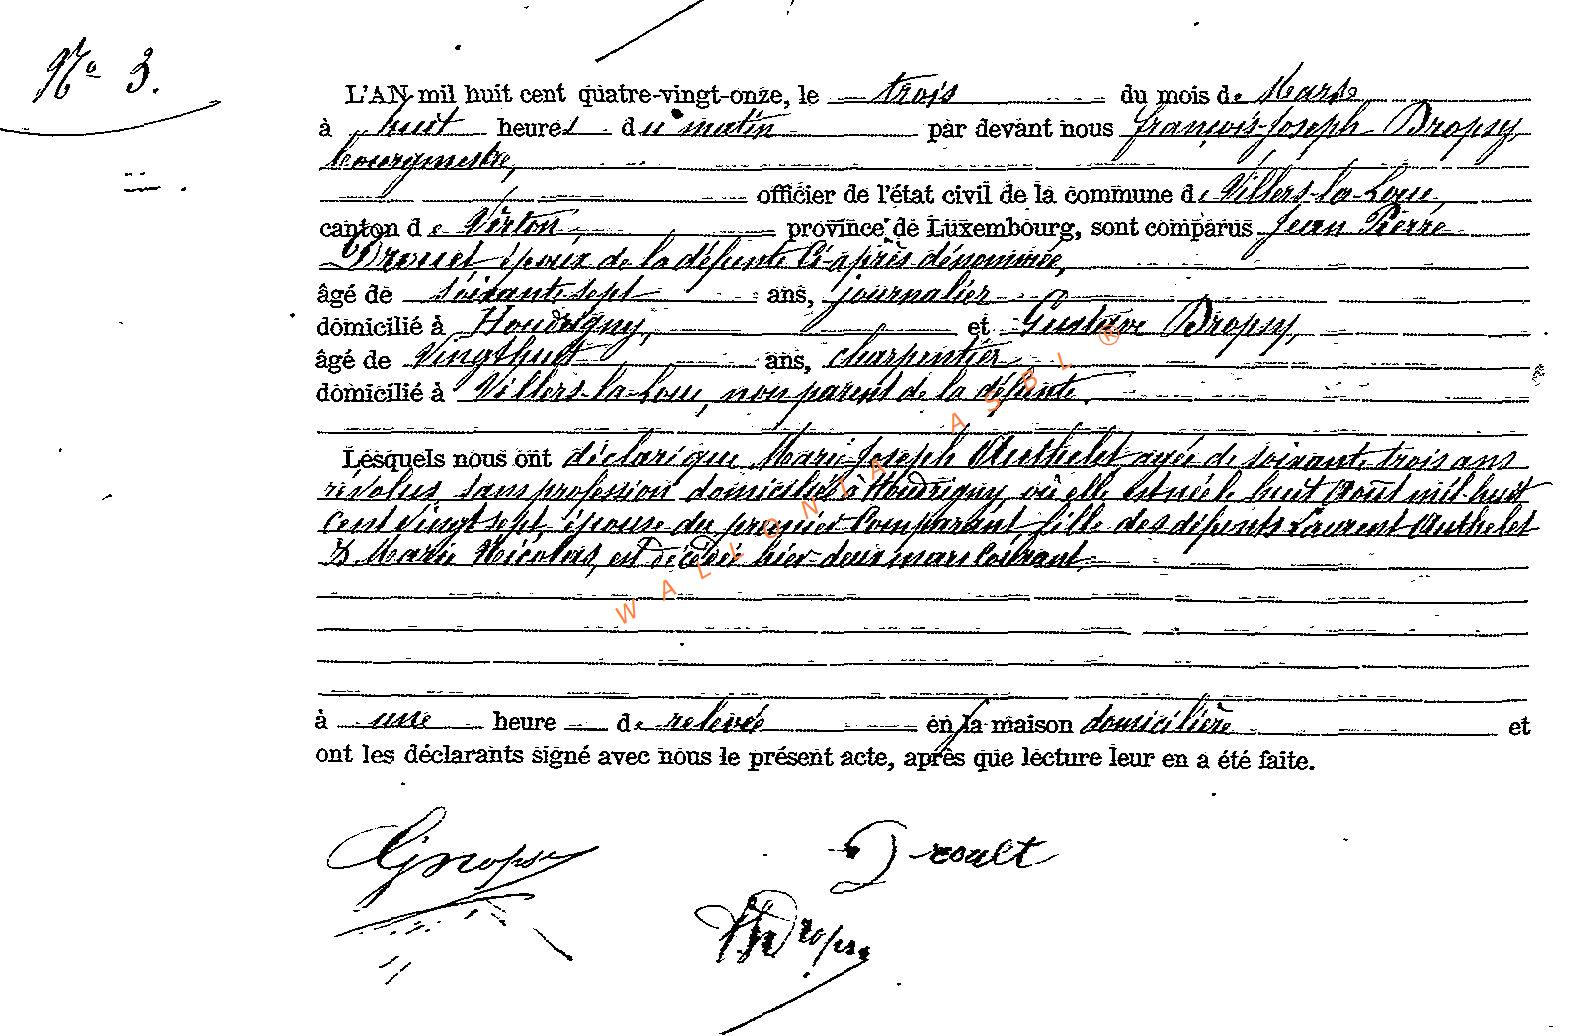 No 3.
L'AN mil huit cent quatre-vingt-onze, le trois du mois de Mars
à huit heures du matin par devant nous françois-Joseph Dropsy,
bourgmestre,
officier de l'état civil de la commune de Villers-la-Loue,
canton de Virton, province de Luxembourg, sont comparus Jean Pierre
Drouet, époux de la défunte Ci-après dénommée,
âgé de soixante sept ans, journalier
domicilié à Houdrigny, et Gustave Dropsy,
âgé de Vingthuit ans, charpentier
domicilié à Villers-la-Loue, non parent de la défunte.
Lesquels nous ont déclaré que Marie-Joseph Authelet agée de soixante trois ans
révolus, sans profession domiciliée à Houdrigny, où elle est née le huit Août mil-huit
cent Vingt sept, épouse du premier Comparant, fille des défunts Laurent Authelet
& Marie Nicolas, est décédée hier deux mars Courant,
à une heure de relevée en la maison domicilière et
ont les déclarants signé avec nous le présent acte, après que lecture leur en a été faite.
GDropsy
Droult
Dropsy
WALLONIA ASBL ®